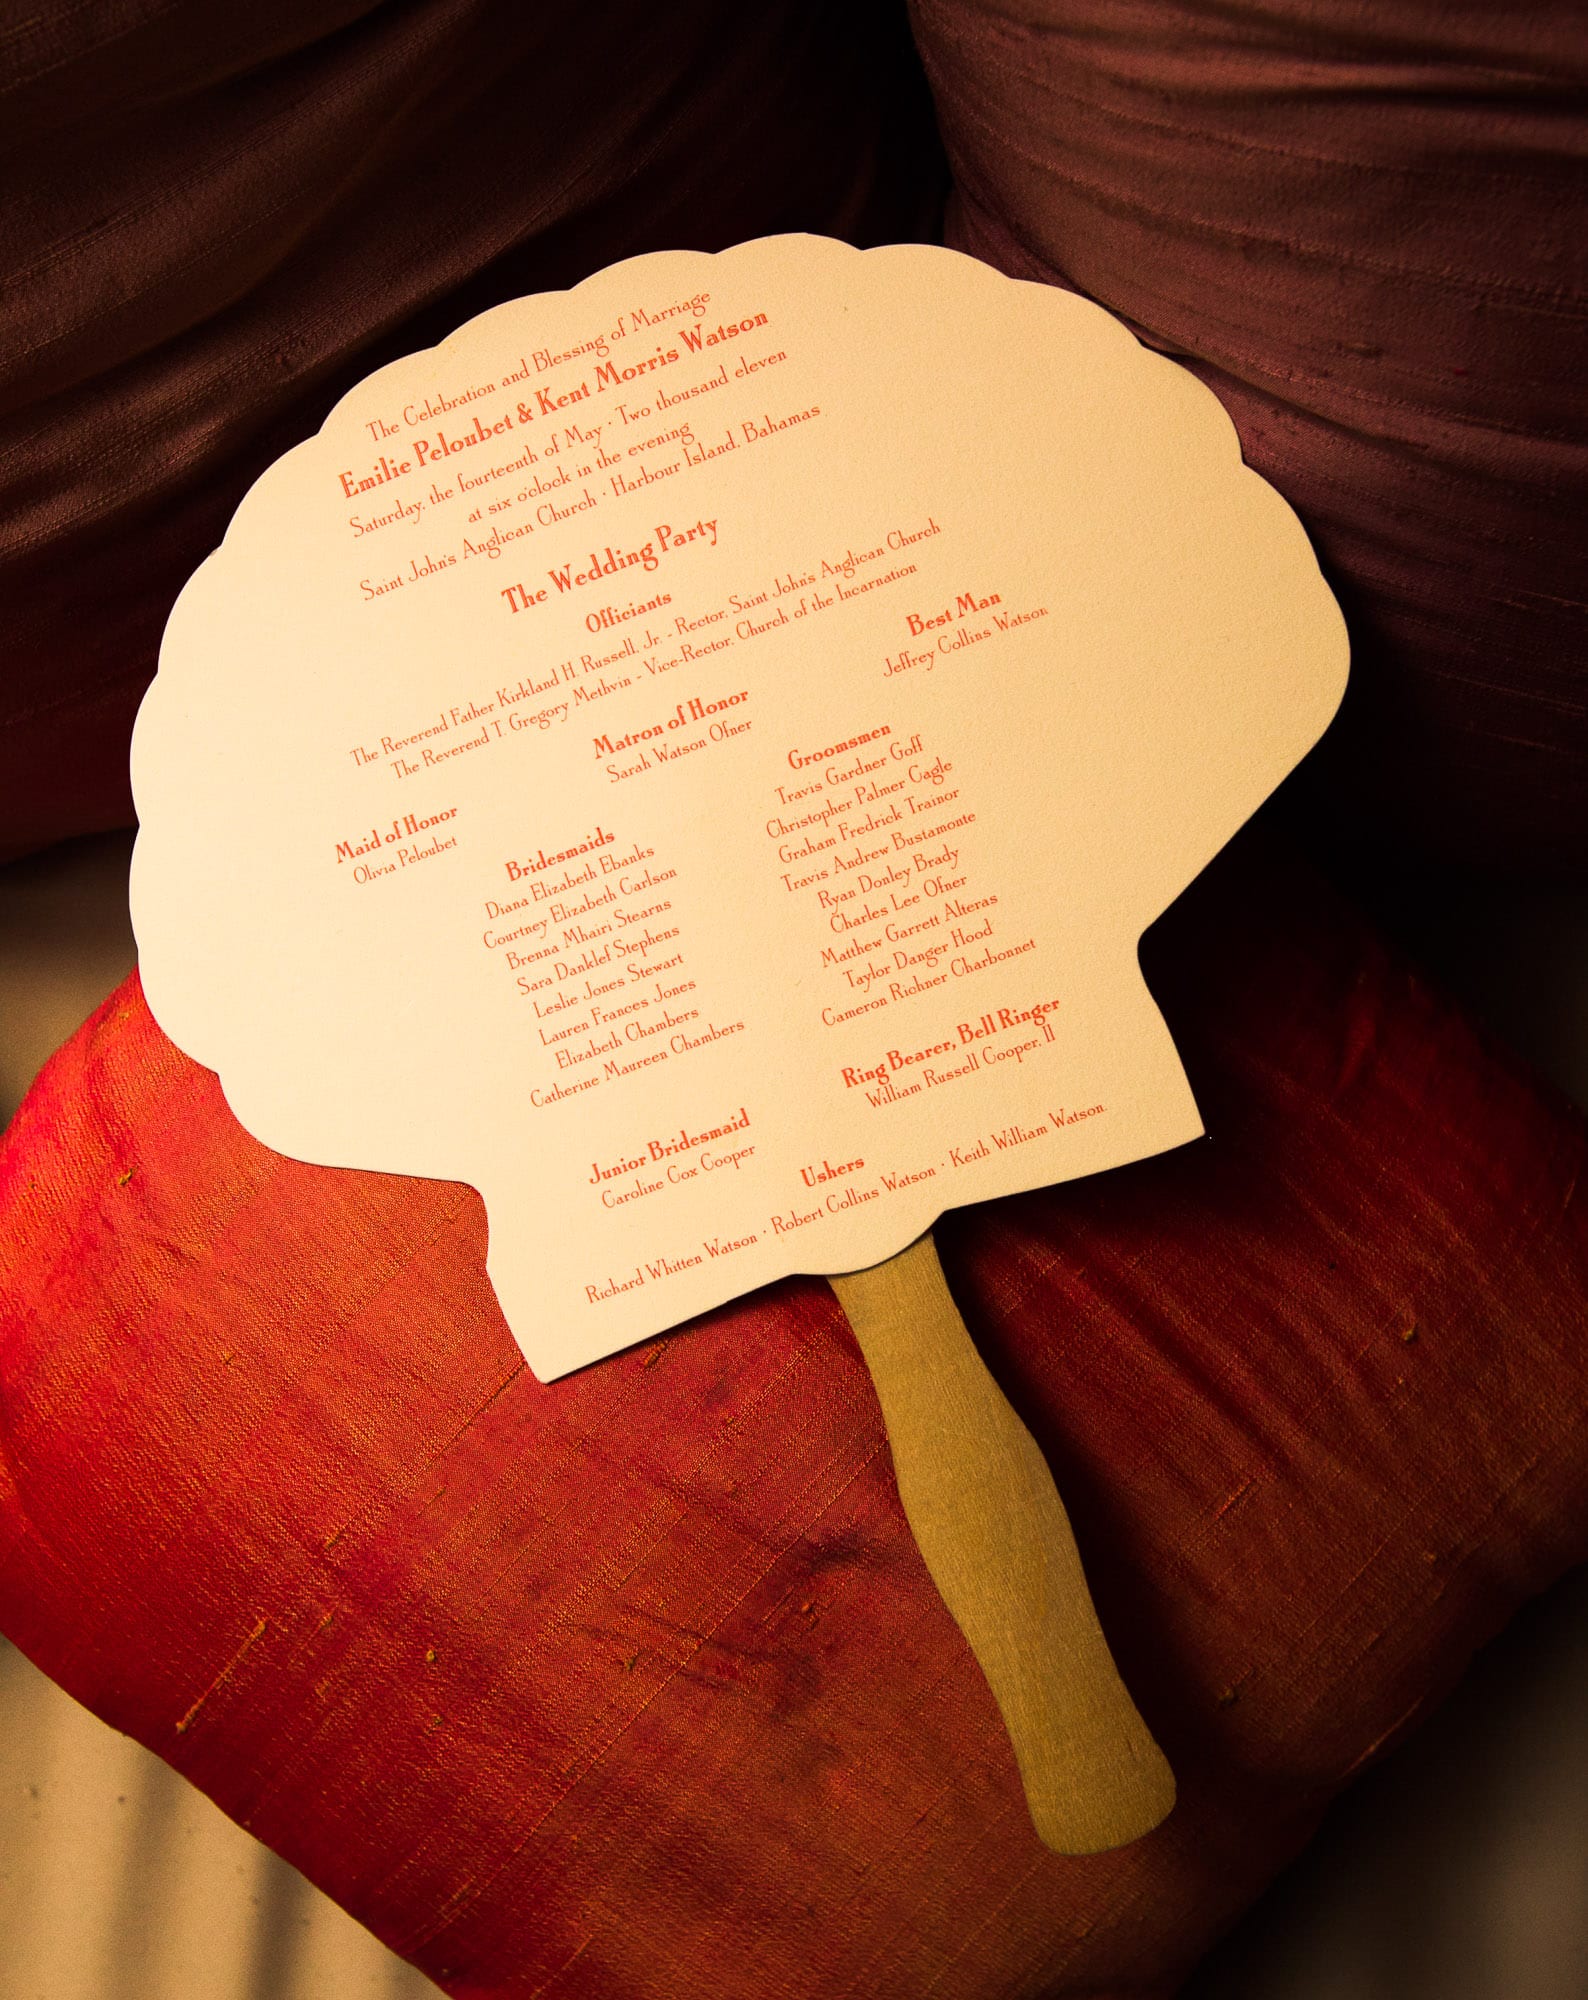 The Celebration and Blessing of Marriage
Emilie Peloubet & Kent Morris Watson
Saturday, the fourteenth of May · Two thousand eleven
at six o'clock in the evening
Saint John's Anglican Church · Harbour Island, Bahamas
The Wedding Party
Officiants
The Reverend Father Kirkland H. Russell, Jr. - Rector, Saint John's Anglican Church
The Reverend T. Gregory Methvin - Vice-Rector, Church of the Incarnation
Maid of Honor
Olivia Peloubet
Matron of Honor
Sarah Watson Ofner
Best Man
Jeffrey Collins Watson
Bridesmaids
Diana Elizabeth Ebanks
Courtney Elizabeth Carlson
Brenna Mhairi Stearns
Sara Danklef Stephens
Leslie Jones Stewart
Lauren Frances Jones
Elizabeth Chambers
Catherine Maureen Chambers
Groomsmen
Travis Gardner Goff
Christopher Palmer Cagle
Graham Fredrick Trainor
Travis Andrew Bustamonte
Ryan Donley Brady
Charles Lee Ofner
Matthew Garrett Alteras
Taylor Danger Hood
Cameron Richner Charbonnet
Junior Bridesmaid
Caroline Cox Cooper
Ring Bearer, Bell Ringer
William Russell Cooper, II
Ushers
Richard Whitten Watson · Robert Collins Watson · Keith William Watson